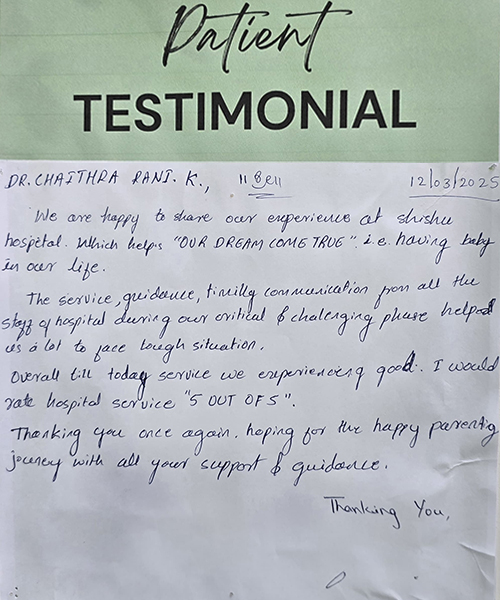 Patient
TESTIMONIAL
DR. CHAITHRA RANI. K., 11 8e11 12/03/2025
We are happy to share our experience at shishu
hospital. Which helps "OUR DREAM COME TRUE". i.e. having baby
in our life.
The service, guidance, timilly communication from all the
staff of hospital during our critical & challenging phase helped
us a lot to face tough situation.
Overall till today service we experiencing good. I would
rate hospital service "5 OUT OF 5".
Thanking you once again. hoping for the happy parenting
journey with all your support & guidance.
Thanking You,